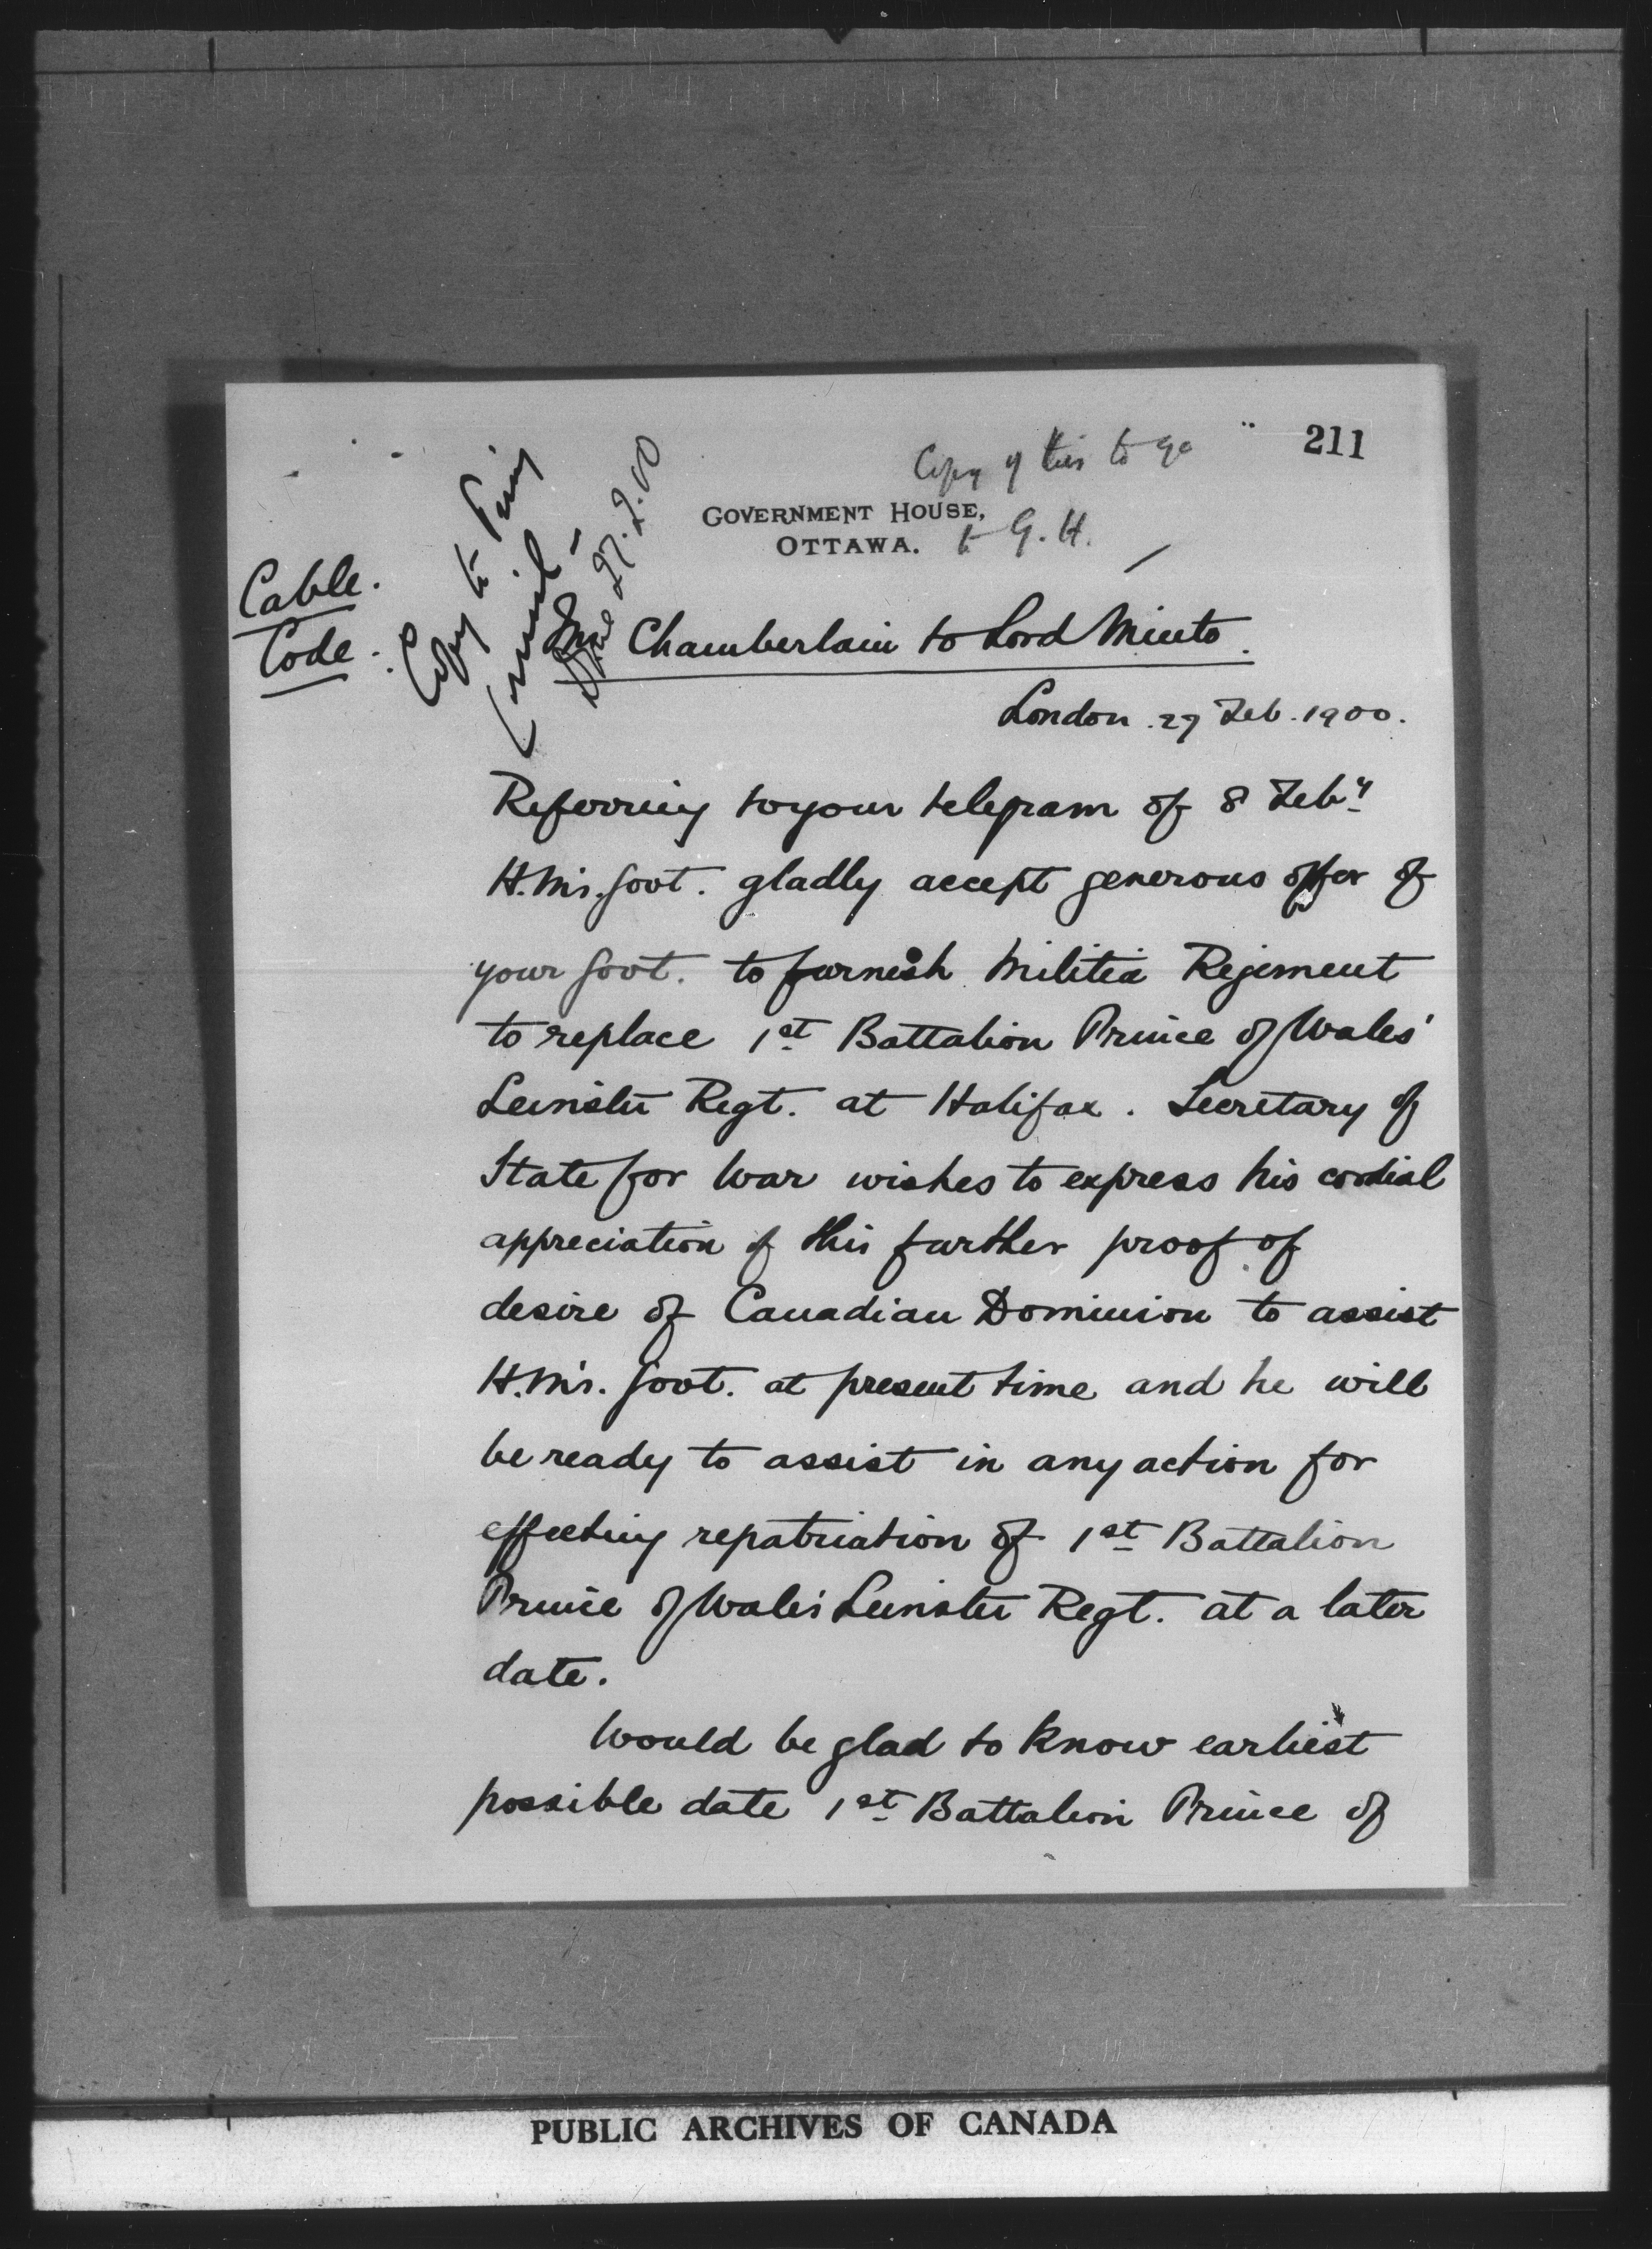 211
Copy of this to go
to G. H.
GOVERNMENT HOUSE,
OTTAWA.
Cable.
Code.
Copy to Privy
Council
27.2.00
Mr Chamberlain to Lord Minto.
London. 27 Feb. 1900.
Referring to your telegram of 8 Feby
H.M's. Govt. gladly accept generous offer of
your Govt. to furnish Militia Regiment
to replace 1st Battalion Prince of Wales'
Leinster Regt. at Halifax. Secretary of
State for War wishes to express his cordial
appreciation of this further proof of
desire of Canadian Dominion to assist
H.M's. Govt. at present time and he will
be ready to assist in any action for
effecting repatriation of 1st Battalion
Prince of Wales' Leinster Regt. at a later
date.
Would be glad to know earliest
possible date 1st Battalion Prince of
PUBLIC ARCHIVES OF CANADA